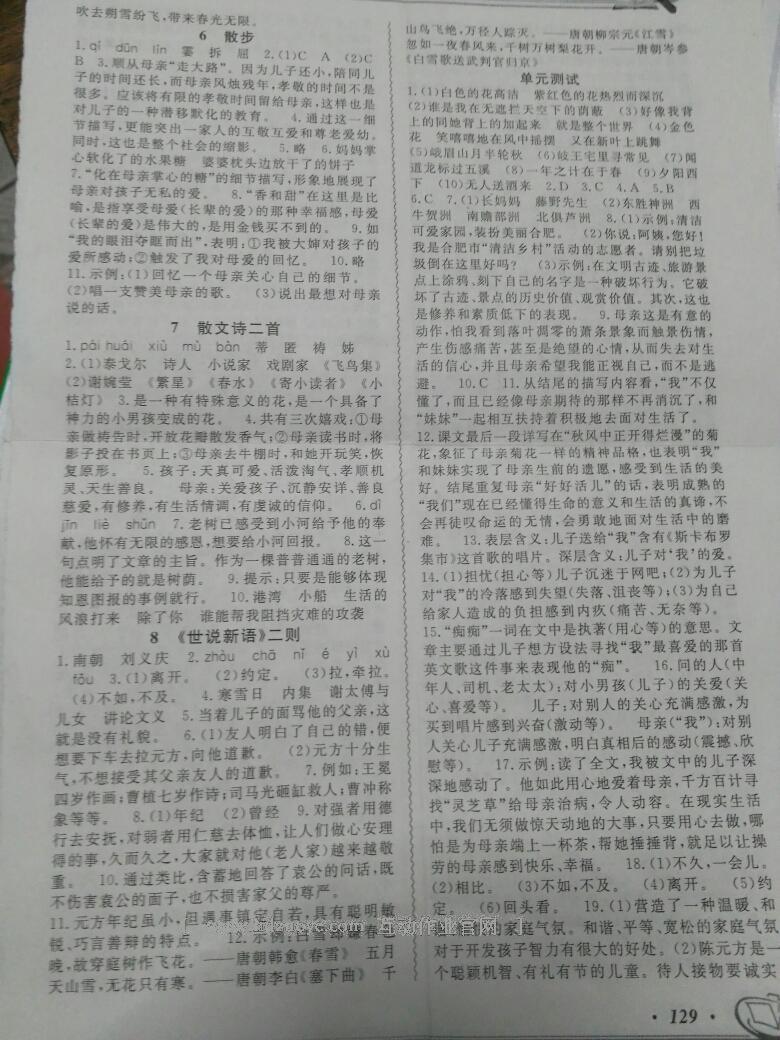 吹去朔雪纷飞,带来春光无限。
6 散步
1.qí dūn lín 霎 拆 屈 2.(1)C A (2)C
B 3.顺从母亲“走大路”。因为儿子还小,陪同儿
子的时间还长,而母亲风烛残年,孝敬的时间不是
很多。应该将有限的孝敬时间留给母亲,这样也是
对儿子的一种潜移默化的教育。 4.通过这一细
节描写,更能突出一家人的互敬互爱和尊老爱幼。
同时,这也是整个社会的缩影。 5.略 6.妈妈掌
心软化了的水果糖 婆婆枕头边放干了的饼子
7.“化在母亲掌心的糖”的细节描写,形象地展现了
母亲对孩子无私的爱。 8.“香和甜”在这里是比
喻,是指享受母爱(长辈的爱)的那种幸福感,母爱
(长辈的爱)是伟大的,是用金钱买不到的。 9.如
“我的眼泪夺眶而出”,表明:①我被大婶对孩子的
爱所感动;②触发了我对母爱的回忆。 10.略
11.示例:(1)回忆一个母亲关心自己的细节。
(2)唱一支赞美母亲的歌。 (3)说出最想对母亲
说的话。
7 散文诗二首
1.pái huái xiù mù bàn 蒂 匿 祷 姊
2.(1)泰戈尔 诗人 小说家 戏剧家 《飞鸟集》
(2)谢婉莹 《繁星》 《春水》 《寄小读者》 《小
桔灯》 3.是一种有特殊意义的花,是一个具备了
神力的小男孩变成的花。 4.共有三次嬉戏:①母
亲做祷告时,开放花瓣散发香气;②母亲读书时,将
影子投在书页上;③母亲去牛棚时,和她开玩笑,恢
复原形。 5.孩子:天真可爱、活泼淘气、孝顺机
灵、天生善良。 母亲:关爱孩子、沉静安详、善良
慈爱,有修养,有生活情调,有虔诚的信仰。 6.dī
jīn liè shǔn 7.老树已感受到小河给予他的奉
献,他怀有无限的感恩,想要给小河回报。 8.这一
句点明了文章的主旨。作为一棵普普通通的老树,
他能给予的就是树荫。 9.提示:只要是能够体现
知恩图报的事例就行。 10.港湾 小船 生活的
风浪打来 除了你 谁能帮我阻挡灾难的攻袭
8 《世说新语》二则
1.南朝 刘义庆 2.zhòu chā nǐ é yì xù
fǒu 3.(1)离开。 (2)约定。 (3)拉,牵拉。
(4)不如,不及。 4.寒雪日 内集 谢太傅与
儿女 讲论文义 5.当着儿子的面骂他的父亲,这
就是没有礼貌。 6.(1)友人明白了自己的错,便
想要下车去拉元方,向他道歉。 (2)元方十分生
气,不想接受其父亲友人的道歉。 7.例如:王冕
四岁作画;曹植七岁作诗;司马光砸缸救人;曹冲称
象等等。 8.(1)年纪 (2)曾经 9.对强者用德
行去安抚,对弱者用仁慈去体恤,让人们做心安理
得的事,久而久之,大家就对他(老人家)越来越敬
重。 10.通过类比,含蓄地回答了袁公的问话,既
不伤害袁公的面子,也不损害家父的尊严。
11.元方年纪虽小,但遇事镇定自若,具有聪明敏
锐、巧言善辩的特点。 12.示例:白雪却嫌春色
晚,故穿庭树作飞花。——唐朝韩愈《春雪》 五月
天山雪,无花只有寒。——唐朝李白《塞下曲》 千
山鸟飞绝,万径人踪灭。——唐朝柳宗元《江雪》
忽如一夜春风来,千树万树梨花开。——唐朝岑参
《白雪歌送武判官归京》
单元测试
1.(1)白色的花高洁 紫红色的花热烈而深沉
(2)谁是我在无遮拦天空下的荫蔽 (3)好像我背
上的同她背上的加起来 就是整个世界 (4)金色
花 笑嘻嘻地在风中摇摆 又在新叶上跳舞
(5)峨眉山月半轮秋 (6)岐王宅里寻常见 (7)闻
道龙标过五溪 (8)一年之计在于春 (9)夕阳西
下 (10)无人送酒来 2.D 3.C 4.A 5.B
6.C 7.(1)长妈妈 藤野先生 (2)东胜神洲 西
牛贺洲 南赡部洲 北俱芦洲 8.(1)示例:清洁
可爱家园,装扮美丽合肥。 (2)你说:阿姨,您好!
我是合肥市“清洁乡村”活动的志愿者。请别把垃
圾倒在这里好吗? (3)示例:在文明古迹、旅游景
点上涂鸦、刻下自己的名字是一种破坏行为。它破
坏了古迹、景点的历史价值、观赏价值。其次,这也
是修养和素质低下的表现。 9.母亲这是有意的
动作,怕我看到落叶凋零的萧条景象而触景伤情,
产生伤感痛苦,甚至是绝望的心情,从而失去对生
活的信心,并且母亲希望我能正视自己,而不是逃
避。 10.C 11.从结尾的描写内容看,“我”不仅
懂了,而且已经像母亲期待的那样不再消沉了,和
“妹妹”一起相互扶持着积极地去面对生活了。
12.课文最后一段详写在“秋风中正开得烂漫”的菊
花,象征了母亲菊花一样的精神品格,也表明“我”
和妹妹实现了母亲生前的遗愿,感受到生活的美
好。结尾重复母亲“好好活儿”的话,表明成熟的
“我们”现在已经懂得生命的意义和生活的真谛,不
会再徒叹命运的无情,会勇敢地面对生活中的磨
难。 13.表层含义:儿子送给“我”含有《斯卡布罗
集市》这首歌的唱片。深层含义:儿子对‘我’的爱。
14.(1)担忧(担心等)儿子沉迷于网吧;(2)为儿子
对“我”的冷落感到失望(失落、沮丧等);(3)为自己
给家人造成的负担感到内疚(痛苦、无奈等)。
15.“痴痴”一词在文中是执著(用心等)的意思。文
章主要通过儿子想方设法寻找“我”最喜爱的那首
英文歌这件事来表现他的“痴”。 16.问的人(中
年人、司机、老太太):对小男孩(儿子)的关爱(关
心、喜爱等)。 儿子:对别人的关心充满感激,为
买到唱片感到兴奋(激动等)。 母亲(“我”):对别
人关心儿子充满感激,明白真相后的感动(震撼、欣
慰等)。 17.示例:读了全文,我被文中的儿子深
深地感动了。他如此用心地爱着母亲,千方百计寻
找“灵芝草”给母亲治病,令人动容。在现实生活
中,我们无须做惊天动地的大事,只要用心去做,哪
怕是为母亲端上一杯茶,帮她捶捶背,就足以让操
劳的母亲感到快乐、幸福。 18.(1)不久,一会儿。
(2)相比。 (3)不如,不及。 (4)离开。 (5)约
定。 (6)回头看。 19.(1)营造了一种温暖、和
家庭气氛。和谐、平等、宽松的家庭气氛
对于开发孩子智力有很大的好处。(2)陈元方是一
个聪颖机智、有礼有节的儿童。待人接物要诚实
· 129 ·
互动作业官网